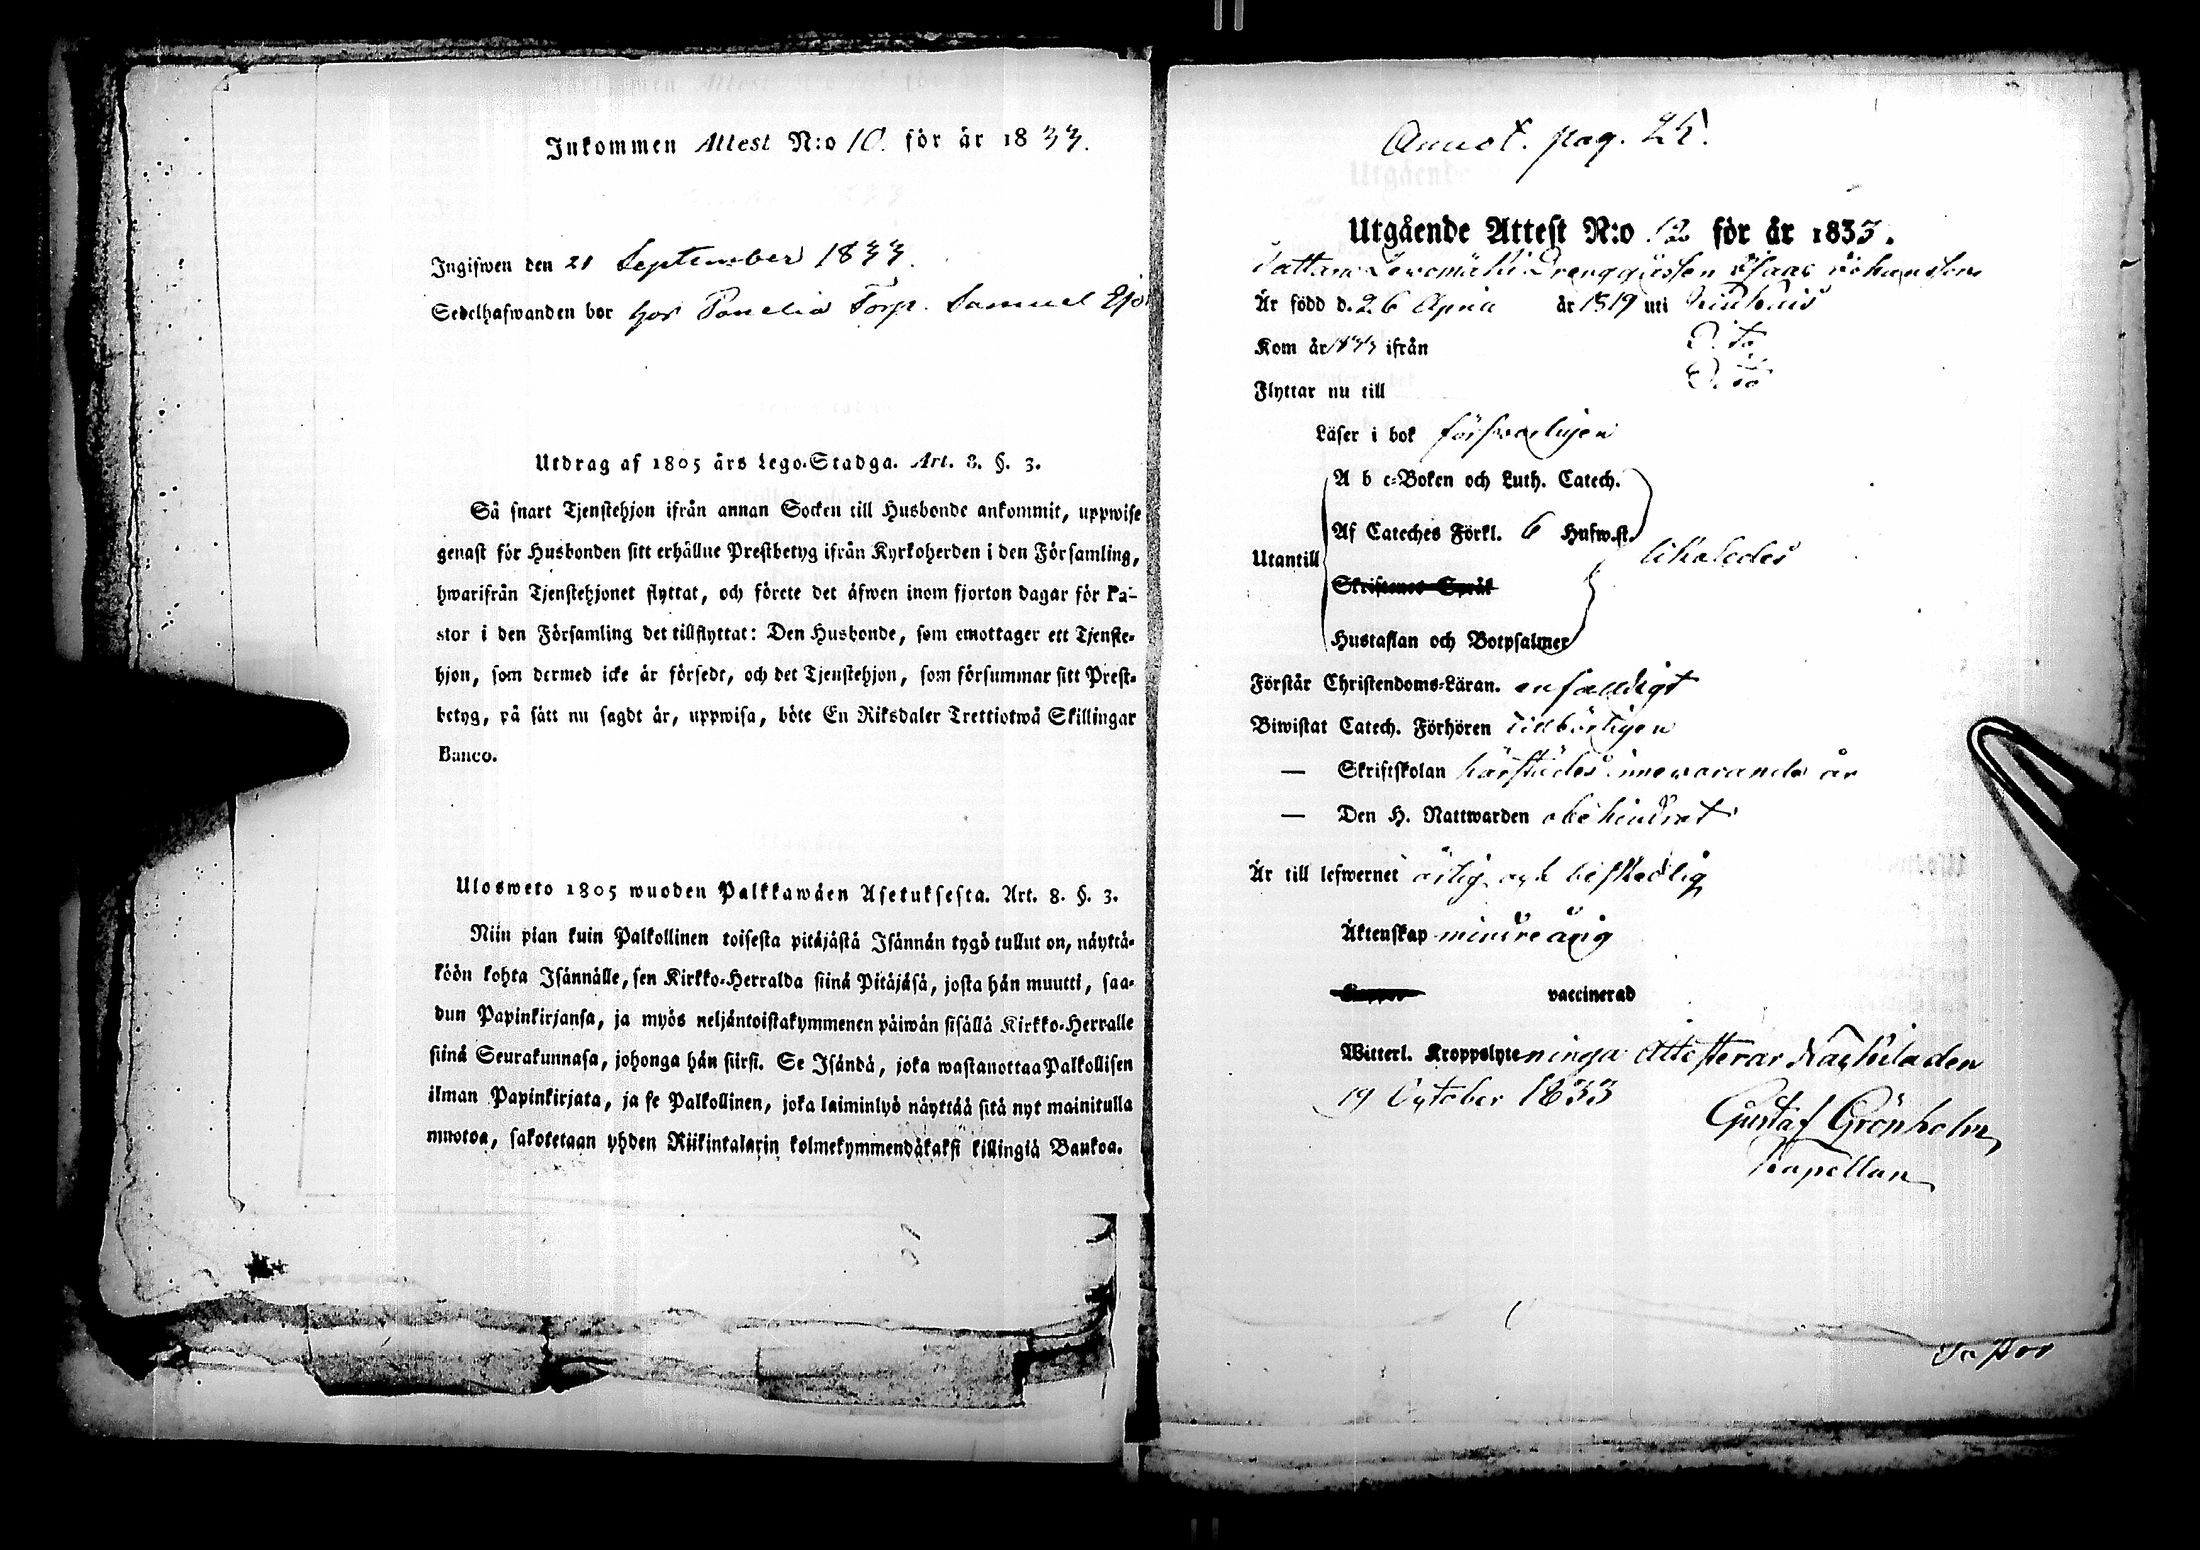 Inkommen Attest N:o 10. för år 1833.
Ingifwen den 21 September 1833.
Sedelhafwanden bor hos Panelia Torp. Samuel
Utdrag af 1805 års Lego-Stadga. Art. 8. §. 3.
Så snart Tjenstehjon ifrån annan Socken till Husbonde ankommit, uppwise
genast för Husbonden sitt erhållne Prestbetyg ifrån Kyrkoherden i den Församling,
hwarifrån Tjenstehjonet flyttat, och förete det äfwen inom fjorton dagar för Pa-
stor i den Församling det tillflyttat: Den Husbonde, som emottager ett Tjenste-
hjon, som dermed icke är försedt, och det Tjenstehjon, som försummar sitt Prest-
betyg, på sätt nu sagdt är, uppwisa, böte En Riksdaler Trettiotwå Skillingar
Banco.
Ulosweto 1805 wuoden Palkkawäen Asetuksesta. Art. 8. §. 3.
Niin pian kuin Palkollinen toisesta pitäjästä Isännän tygö tullut on, näyttä-
köön kohta Isännälle, sen Kirkko-Herralda siinä Pitäjäsä, josta hän muutti, saa-
dun Papinkirjansa, ja myös neljäntoistakymmenen päiwän sisällä Kirkko-Herralle
siinä Seurakunnasa, johonga hän siirsi. Se Isändä, joka wastanottaa Palkollisen
ilman Papinkirjata, ja se Palkollinen, joka laiminlyö näyttää sitä nyt mainitulla
muotoa, sakotetaan yhden Riikintalarin kolmekymmendäkaksi killingiä Bankoa.
Annot. pag. 25.
Utgående Attest N:o 12 för år 1833.
Drenggåssen Isaac Johansson
Är född d. 26 April år 1819 uti
Kom år 1833 ifrån Dito
Flyttar nu till Dito
Läser i bok försvarligen
A b c-Boken och Luth. Catech.
Af Cateches Förkl. 6 Hufwst.
Utantill likaledes
Skriftenes Språk
Hustaflan och Botpsalmer
Förstår Christendoms-Läran. enfaldigt
Biwistat Catech. Förhören tillbörligen
— Skriftskolan härstädes innevarande år
— Den H. Nattwarden obehindrat
Är till lefwernet ärlig och beskedlig
Äktenskap mindreårig
vaccinerad
Witterl. Kroppslyteninga Attesterar
19 October 1833
Gustaf Grönholm
Kapellan